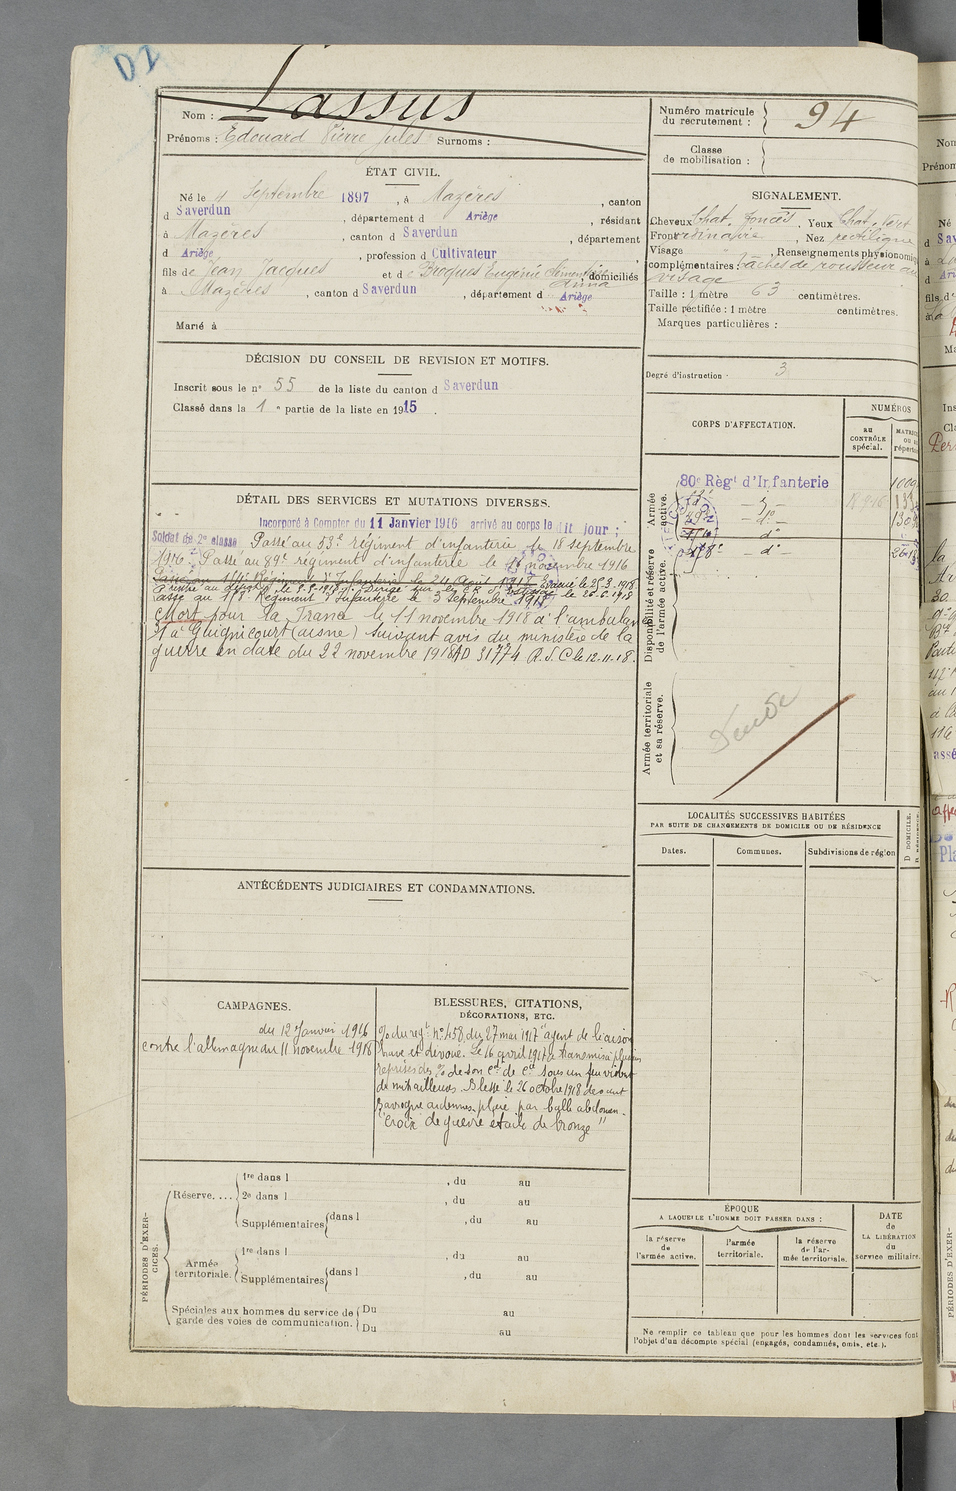 Nom : Lassus
Prénoms : Edouard Pierre Jules Surnoms :
Numéro matricule du recrutement : 94
Classe de mobilisation :
ÉTAT CIVIL.
Né le 4 Septembre 1897, à Mazères, canton
d Saverdun, département d Ariège, résidant
à Mazères, canton d Saverdun, département
d Ariège, profession d Cultivateur
fils de Jean Jacques et de Broques Eugénie Anna domiciliés
à Mazères, canton d Saverdun, département d Ariège
Marié à
SIGNALEMENT.
Cheveux Chat. foncés, Yeux Chat. vert
Front ordinaire, Nez rectiligne
Visage , Renseignements physionomiq
complémentaires : Taches de rousseur au
visage
Taille : 1 mètre 63 centimètres.
Taille rectifiée : 1 mètre centimètres.
Marques particulières :
Degré d'instruction : 3
DÉCISION DU CONSEIL DE REVISION ET MOTIFS.
Inscrit sous le n° 55 de la liste du canton d Saverdun
Classé dans la 1e partie de la liste en 1915.
DÉTAIL DES SERVICES ET MUTATIONS DIVERSES.
Incorporé à Compter du 11 Janvier 1916 arrivé au corps le dit jour ;
Soldat de 2e classe Passé au 53e régiment d'infanterie le 18 septembre
1916. Passé au 89e régiment d'infanterie le 17 novembre 1916
Régiment d'Infanterie le 24 Août 1918 Evacué le 25.3.1918
le 26.8.1918
Passé au Régiment d'Infanterie le 3 Septembre 1918
Mort pour la France le 11 novembre 1918 à l'ambulance
à Guignicourt (aisne) suivant avis du ministère de la
guerre en date du 22 novembre 1918 AD 31774 R.S.C le 12-11-18.
CORPS D'AFFECTATION.
NUMÉROS
au CONTRÔLE spécial.
MATRIC OU au répertoire
Armée active.
80e Régt d'Infanterie
Disponibilité et réserve de l'armée active.
Armée territoriale et sa réserve.
LOCALITÉS SUCCESSIVES HABITÉES
PAR SUITE DE CHANGEMENTS DE DOMICILE OU DE RÉSIDENCE
Dates. Communes. Subdivisions de région D DOMICILE. R RÉSIDENCE.
ANTÉCÉDENTS JUDICIAIRES ET CONDAMNATIONS.
CAMPAGNES.
du 12 Janvier 1916
contre l'allemagne au 11 novembre 1918
BLESSURES, CITATIONS,
DÉCORATIONS, ETC.
O/ du regt n° 458 du 27 mai 1917 "agent de liaison
brave et dévoué. Le 16 avril 1917 a transmis à plusieurs
reprises des O/ de son Ct de Cie sous un feu violent
de mitrailleuses. Blessé le 26 octobre 1918 devant
plaie par balle abdomen.
Croix de guerre étoile de bronze"
PÉRIODES D'EXERCICES.
Réserve....
1re dans l , du au
2e dans l , du au
Supplémentaires dans l , du au
Armée territoriale.
1re dans l , du au
Supplémentaires dans l , du au
Spéciales aux hommes du service de garde des voies de communication.
Du au
Du au
ÉPOQUE
A LAQUELLE L'HOMME DOIT PASSER DANS :
la réserve de l'armée active.
l'armée territoriale.
la réserve de l'armée territoriale.
DATE de LA LIBÉRATION du service militaire.
Ne remplir ce tableau que pour les hommes dont les services font
l'objet d'un décompte spécial (engagés, condamnés, omis, etc.).